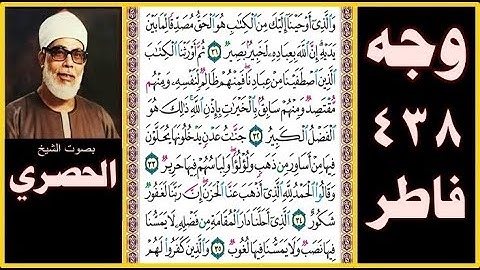 وجه
٤٣٨
فاطر
بصوت الشيخ
الحصري
وَالَّذِي أَوْحَيْنَا إِلَيْكَ مِنَ الْكِتَابِ هُوَ الْحَقُّ مُصَدِّقًا لِمَا بَيْنَ
يَدَيْهِ إِنَّ اللَّهَ بِعِبَادِهِ لَخَبِيرٌ بَصِيرٌ ٣١ ثُمَّ أَوْرَثْنَا الْكِتَابَ
الَّذِينَ اصْطَفَيْنَا مِنْ عِبَادِنَا فَمِنْهُمْ ظَالِمٌ لِنَفْسِهِ وَمِنْهُم
مُقْتَصِدٌ وَمِنْهُمْ سَابِقٌ بِالْخَيْرَاتِ بِإِذْنِ اللَّهِ ذَٰلِكَ هُوَ
الْفَضْلُ الْكَبِيرُ ٣٢ جَنَّاتُ عَدْنٍ يَدْخُلُونَهَا يُحَلَّوْنَ
فِيهَا مِنْ أَسَاوِرَ مِن ذَهَبٍ وَلُؤْلُؤًا وَلِبَاسُهُمْ فِيهَا حَرِيرٌ ٣٣
وَقَالُوا الْحَمْدُ لِلَّهِ الَّذِي أَذْهَبَ عَنَّا الْحَزَنَ إِنَّ رَبَّنَا لَغَفُورٌ
شَكُورٌ ٣٤ الَّذِي أَحَلَّنَا دَارَ الْمُقَامَةِ مِن فَضْلِهِ لَا يَمَسُّنَا
فِيهَا نَصَبٌ وَلَا يَمَسُّنَا فِيهَا لُغُوبٌ ٣٥ وَالَّذِينَ كَفَرُوا لَهُمْ